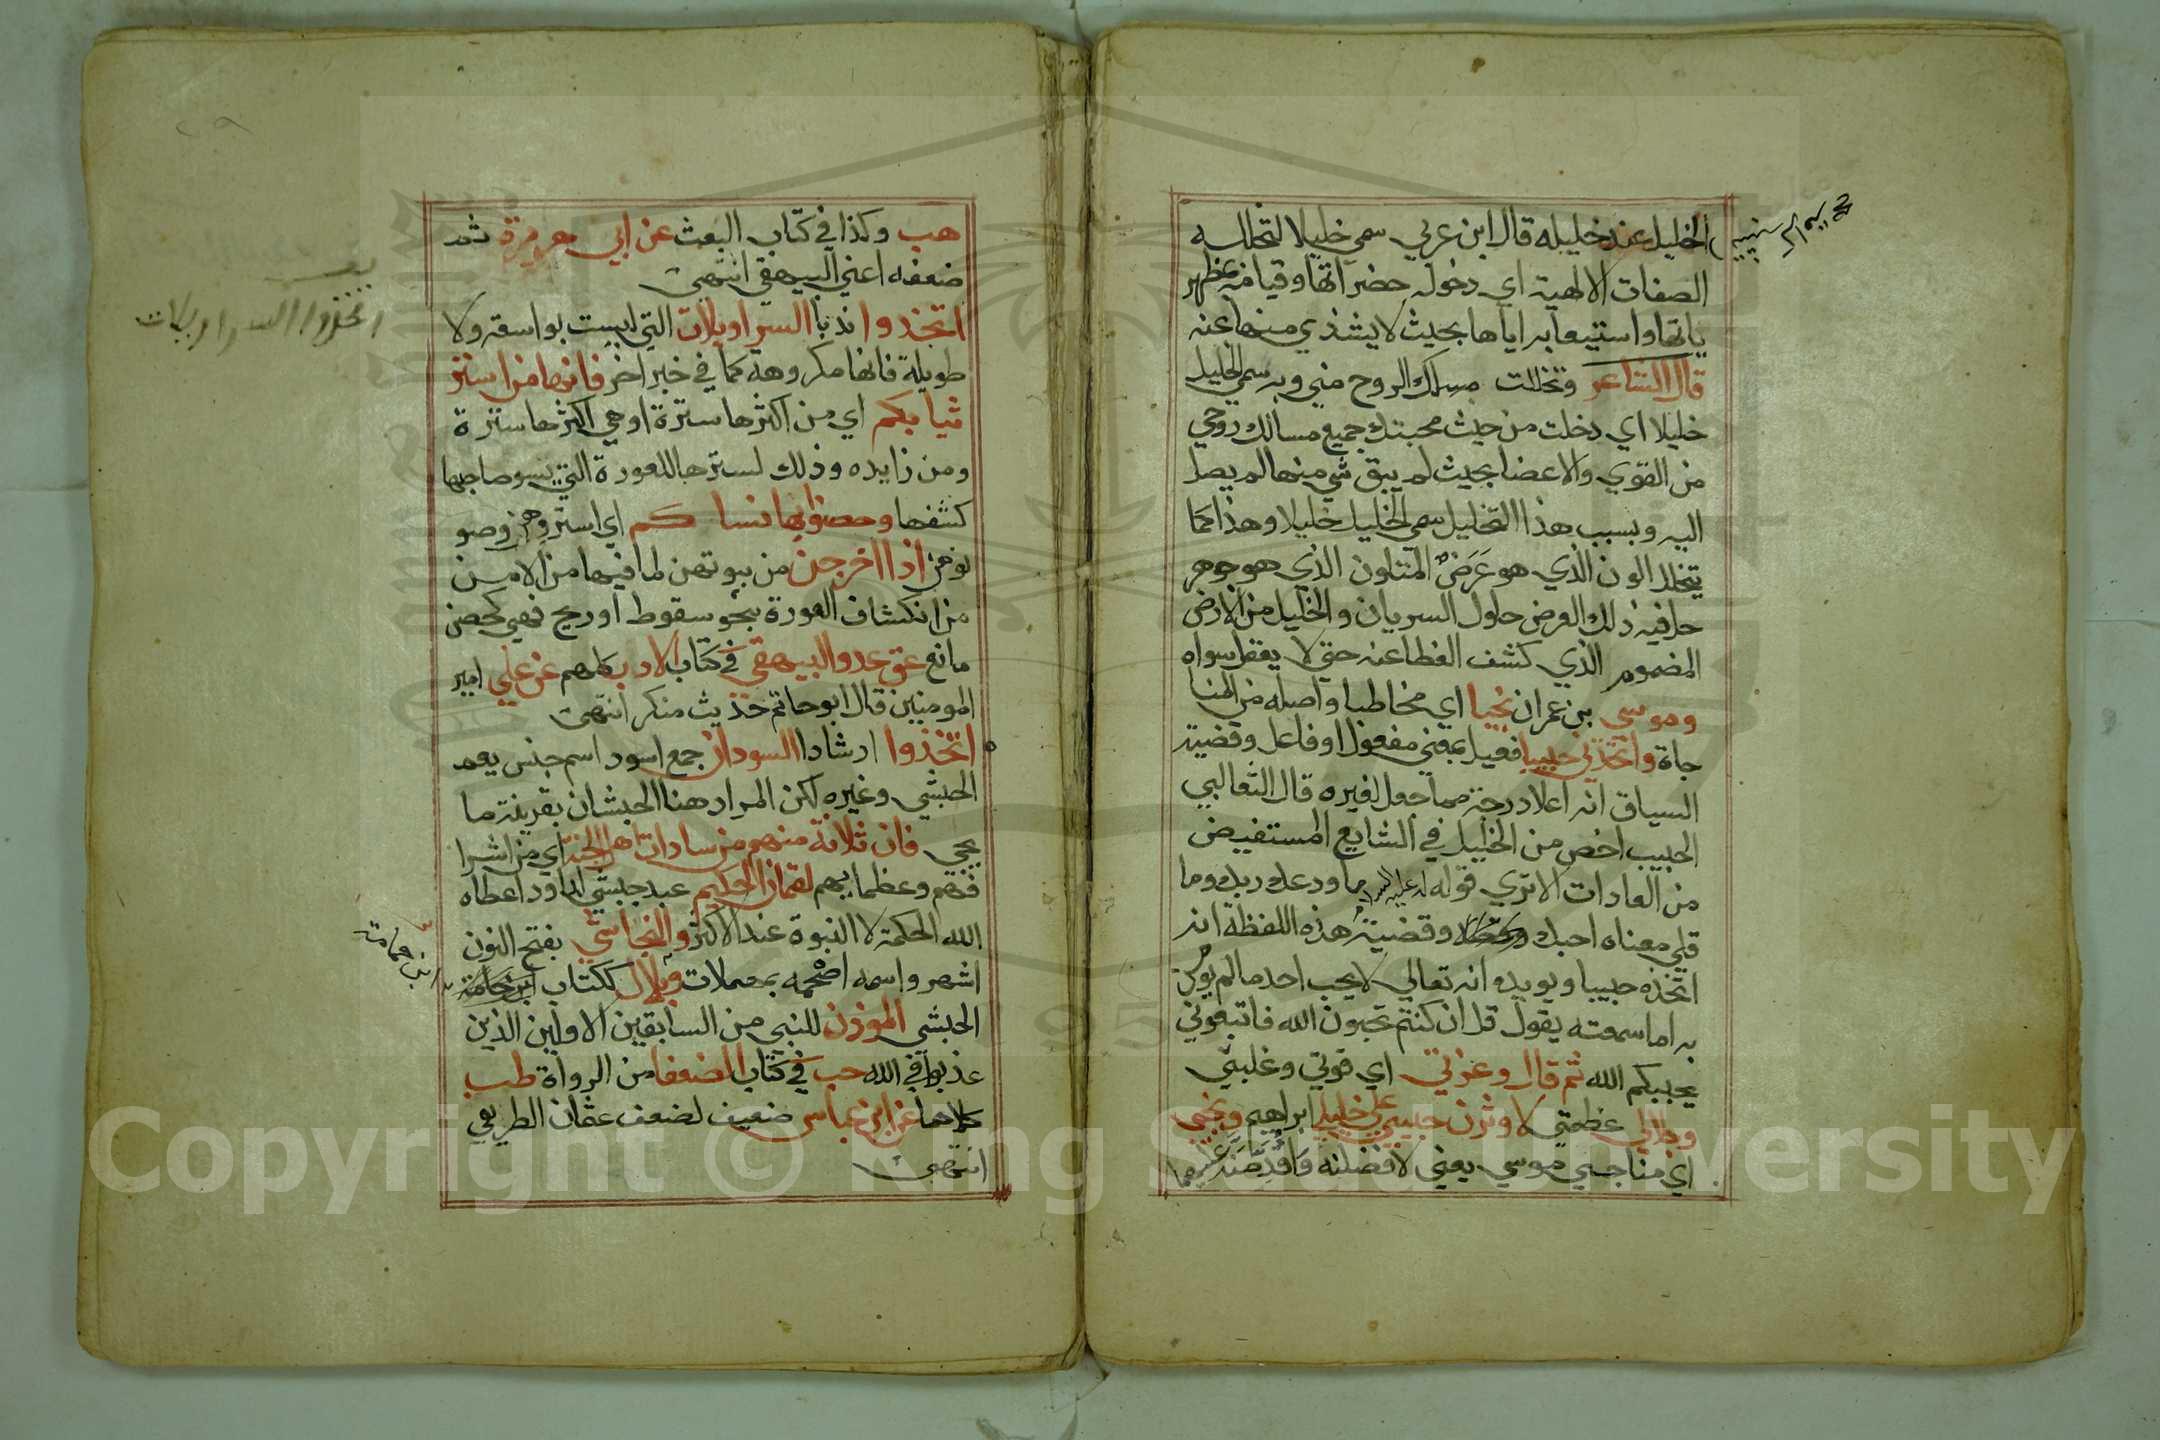 الخليل عند خليله قال ابن عربي سمي خليلا لتخلله
الصفات الالهية اي دخوله حضراتها وقيامه بمظهر
ياتها واستيعابه اياها بحيث لا يشذ شي منها عنه
قال الشاعر وتخللت مسلك الروح مني وبه سمي الخليل
خليلا اي دخلت من حيث محبتك جميع مسالك روحي
من القوي والاعضا بحيث لم يبق شي منها لم يصل
اليه وبسبب هذا التخليل سمي الخليل خليلا وهذا كما
يتخلل اللون الذي هو عَرَضٌ المتلون الذي هو جوهر
حل فيه ذلك العرض حلول السريان والخليل من الارض
المضموم الذي كشف الغطا عنه حتي لا يعقل سواه
وموسي بن عمران نجيا اي مخاطبا واصله من المنا
جاة واتخذني حبيبا فعيل بمعني مفعول او فاعل وقضية
السياق انه اعلا درجة مما جعل لغيره قال الثعالبي
الحبيب اخص من الخليل في الشايع المستفيض
من العادات الا تري قوله له عليه السلام ما ودعك ربك وما
قلي معناه احبك وقضية هذه اللفظة انه
اتخذه حبيبا ويويده انه تعالي لا يحب احدا ما لم يومن
به اما سمعته يقول قل ان كنتم تحبون الله فاتبعوني
يحببكم الله ثم قال وعزتي اي قوتي وغلبتي
وجلالي عظمتي لاوثرن حبيبي علي خليلي ابراهيم ونجيي
اي مناجيي موسي يعني لافضلنه واقدمنه عليهما
هب وكذا في كتاب البعث عن ابي هريرة ثم
ضعفه اعني البيهقي انتهى
اتخذوا ندبا السراويلات التي ليست بواسعة ولا
طويلة فانها مكروهة كما في خبر اخر فانها من استر
ثيابكم اي من اكثرها سترة او هي اكثرها سترة
ومن زايده وذلك لسترها للعورة التي يسو صاحبها
كشفها وحصنوا بها نساكم اي استروهن وصو
نوهن اذا خرجن من بيوتهن لما فيها من الامن
من انكشاف العورة بنحو سقوط او ريح فهي كحصن
مانع عق عد والبيهقي في كتاب الادب كلهم عن علي امير
المومنين قال ابو حاتم حديث منكر انتهى
اتخذوا ارشادا السودان جمع اسود اسم جنس يعم
الحبشي وغيره لكن المراد هنا الحبشان بقرينة ما
يجي فان ثلاثة منهم من سادات اهل الجنة اي من اشرا
فهم وعظمايهم لقمان الحكيم عبد حبشي لداود اعطاه
الله الحكمة لا النبوة عند الاكثر والنجاشي بفتح النون
اشهر واسمه اصحمه بمهملات وبلال ككتاب
ابن حمامة
الحبشي الموذن للنبي من السابقين الاولين الذين
عذبوا في الله حب في كتاب الضعفا من الرواة طب
كلاهما عن ابن عباس ضعيف لضعف عثمان الطريفي
انتهى
اتخذوا السراويلات